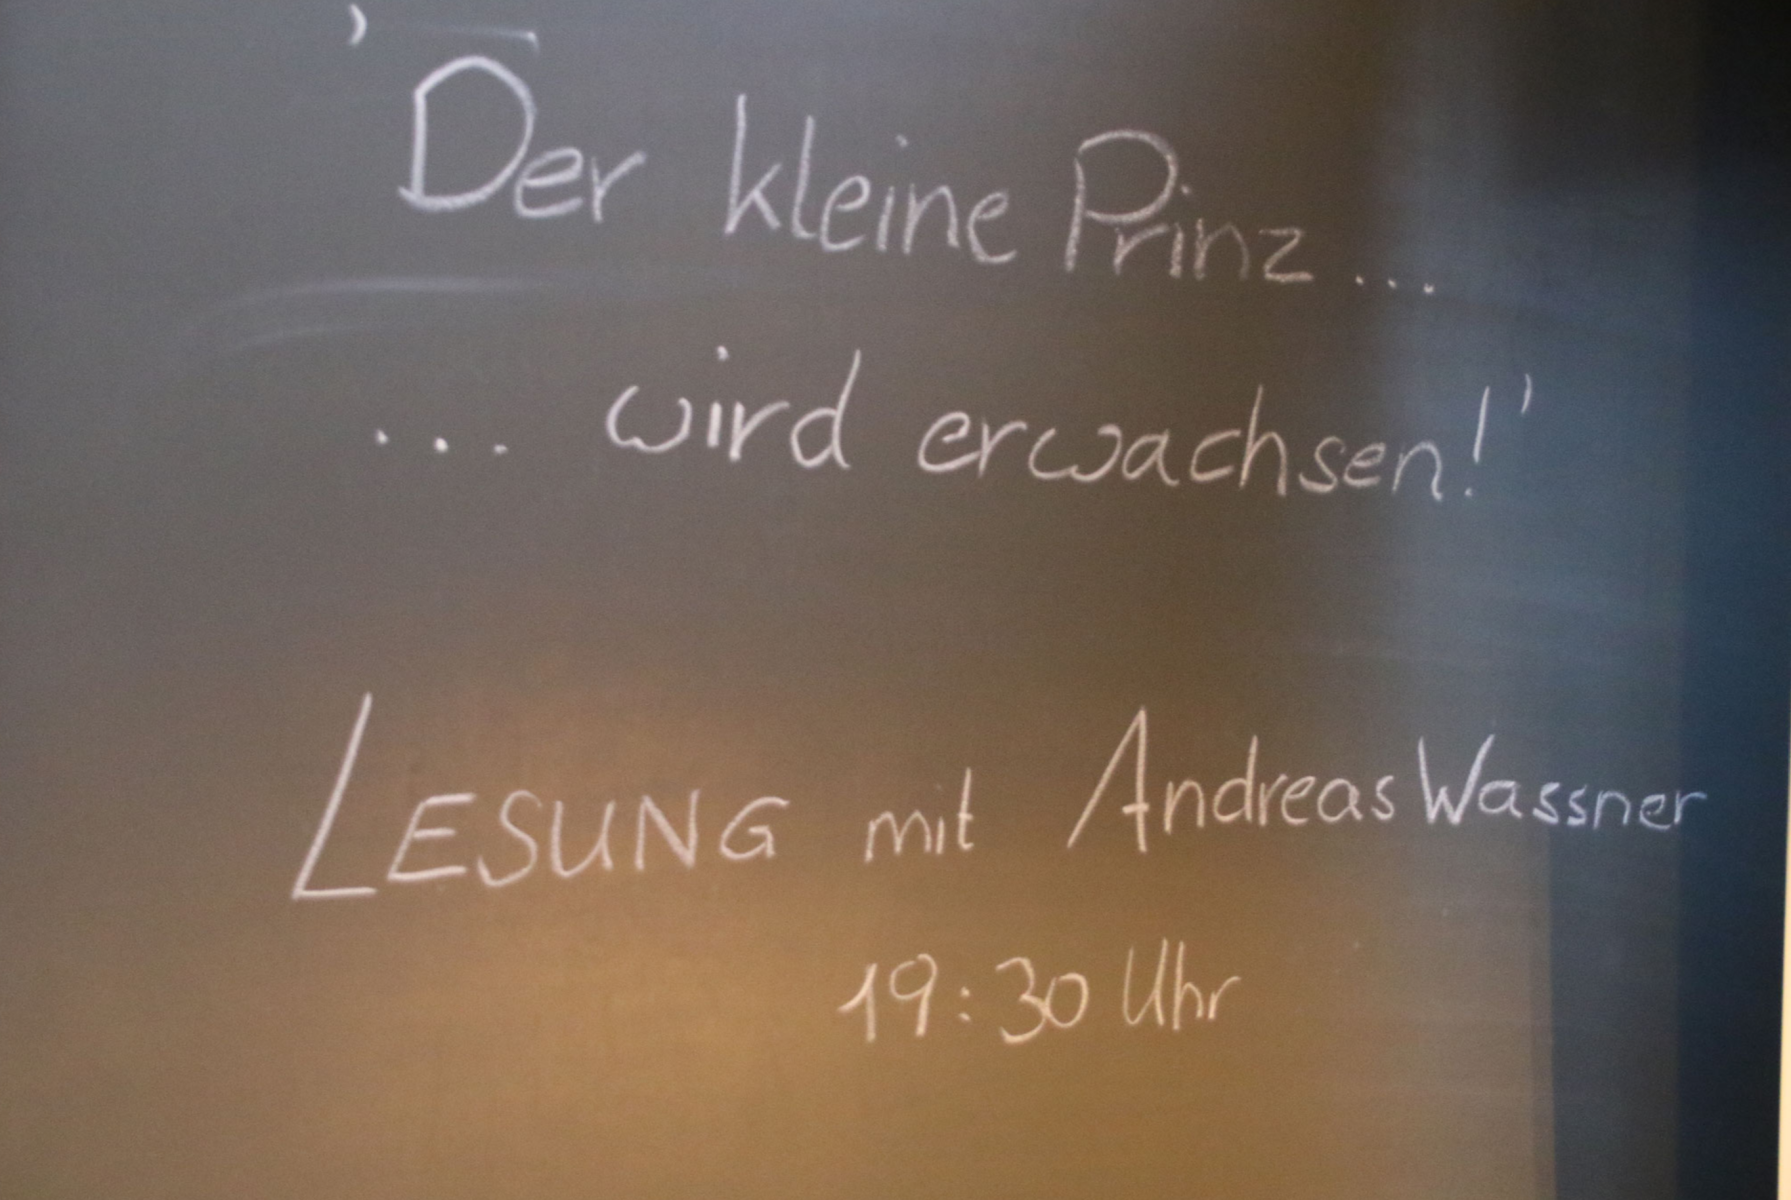 'Der kleine Prinz...
... wird erwachsen!'
LESUNG mit Andreas Wassner
19:30 Uhr